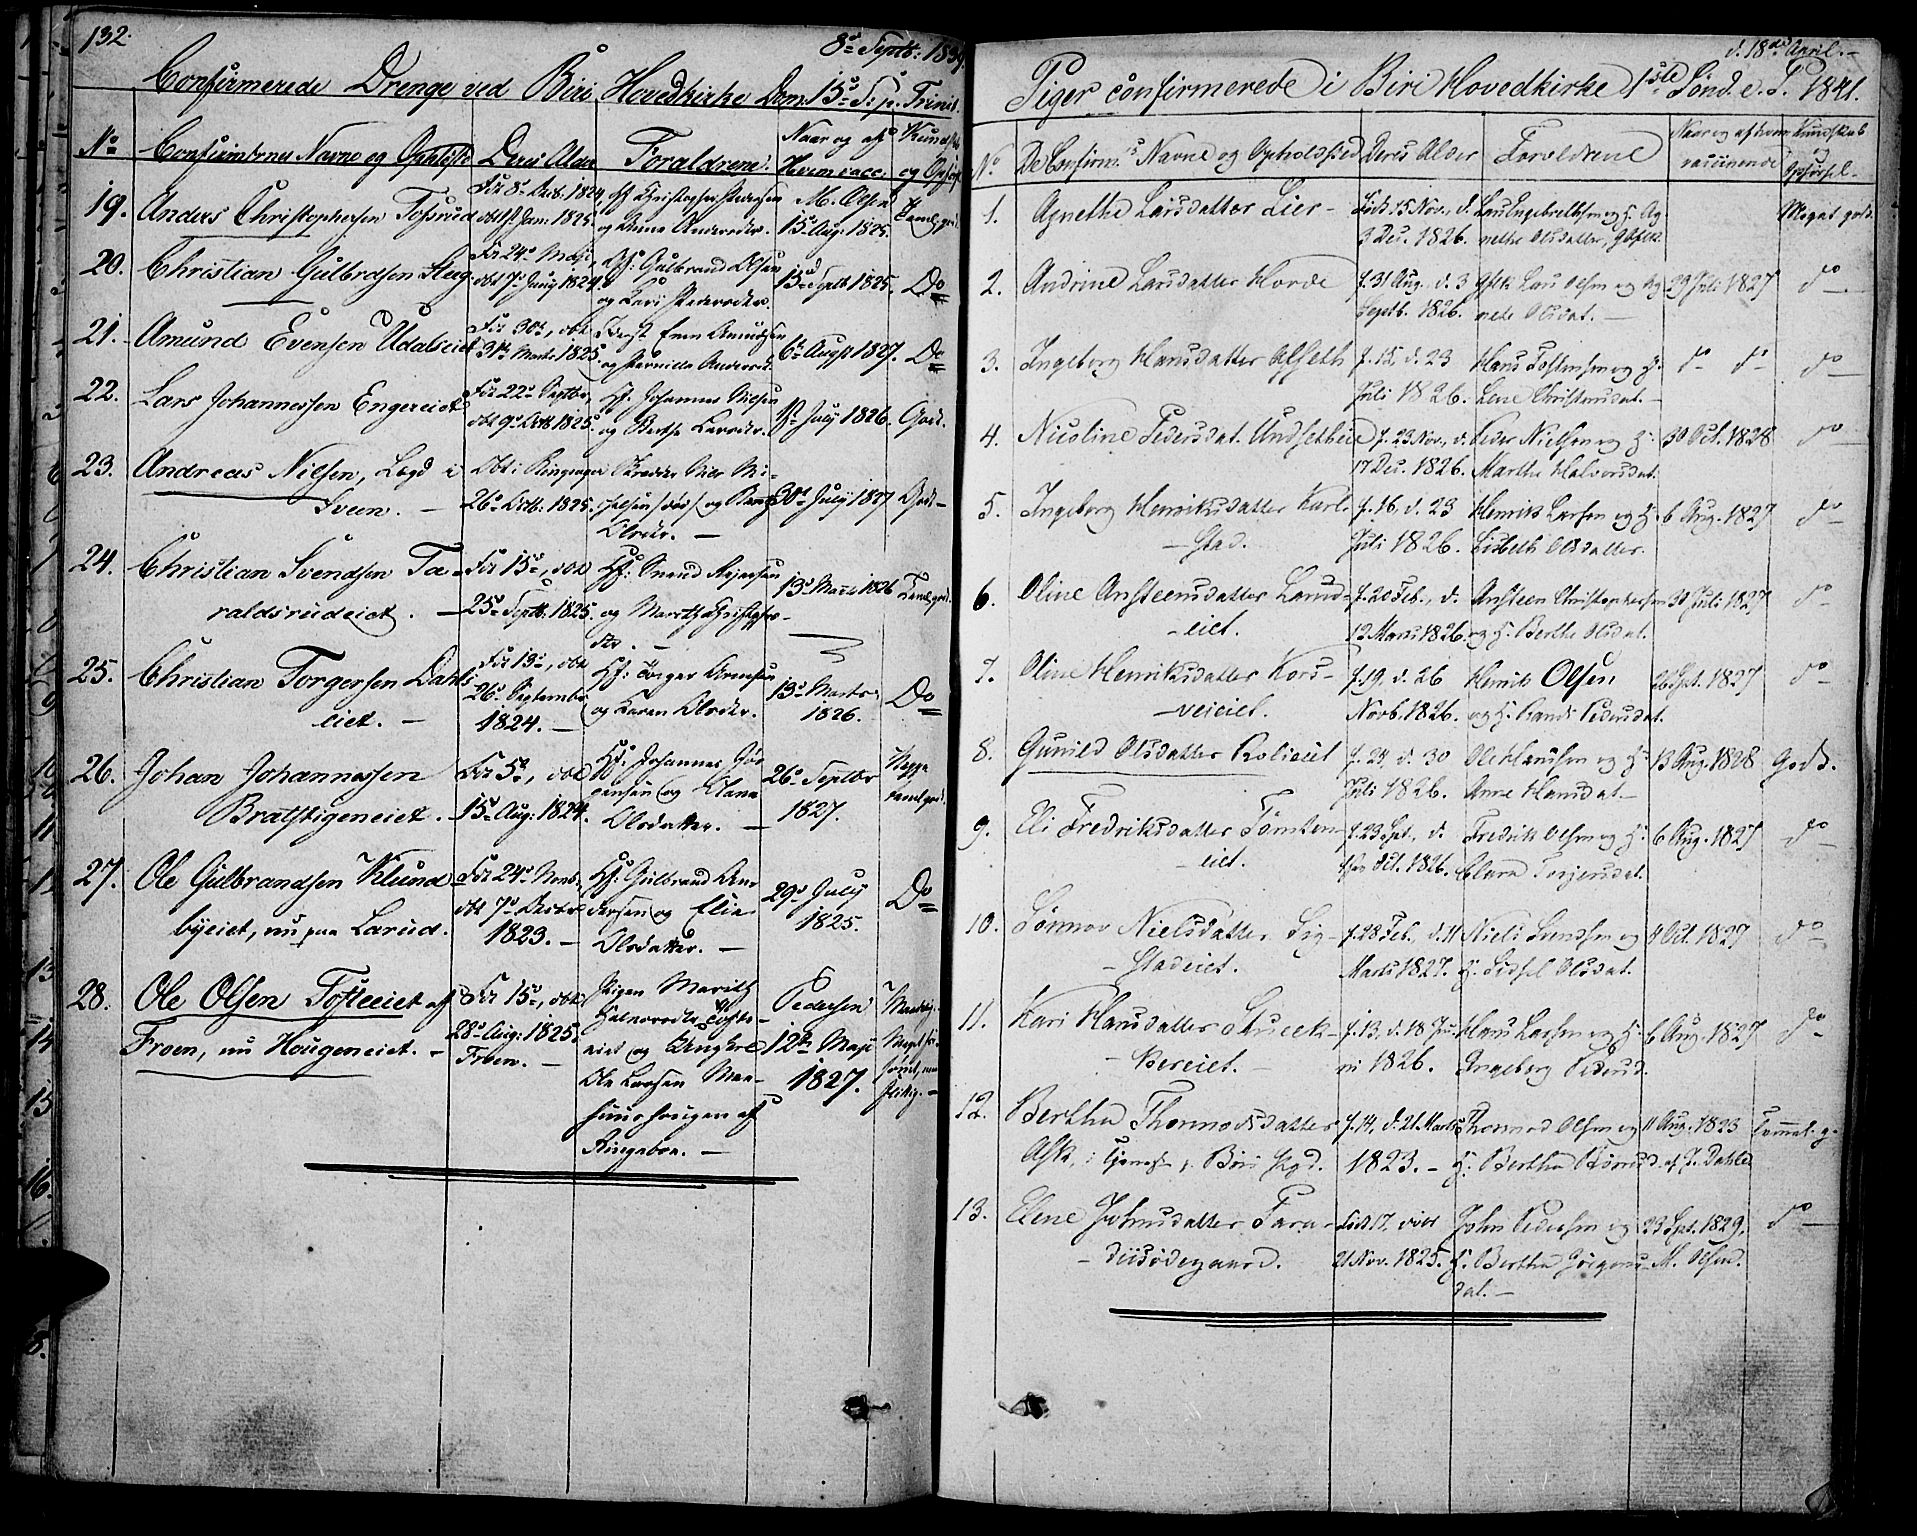 132.
8de Septbr: 1839.
Confirmerede Drenge ved Biri Hovedkirke Dom: 15de S: p. Trinit
No
Confirmternes Navne og Opholdst
Deres Alder
Forældrene.
Naar og af
Hvem vacc:
og
19. Anders Christophersen Tofsrud
Født 8de Octb. 1824,
døbt 1st Jan: 1825.
Hf Christopher Pedersen
og Anne Andersdtr.
M. Olsen
15de Aug. 1825.
Temel. god.
20. Christian Gulbrdsen Skug
Født 24de Maji,
døbt 7de Juny 1824
Hf: Gulbrand Olsen
og Kari Pedersdtr.
13de Septb 1825.
Do
21. Amund Evensen Udalseiet
Født 30te, døbt
31te Marts 1825.
Even Amundsen
og Pernille Andersd.
6te August 1827.
Do
22. Lars Johannessen Engereiet
Født 22de Septbr,
døbt 9de Octb 1825.
Hf. Johannes Nielsen
og Berthe Larsdtr.
1st July 1826.
Godt.
23. Andreas Nilsen, Lægd i
Sveen. -
Døbt i Ringsager
26de Octb: 1825.
Nils
/død/ og
Olsdtr. -
30te July 1827
Godt -
24. Christian Svendsen Ta-
raldsrudeiet. -
Født 15de, døbt
25de Septb. 1825.
Hf: Svend
og Marith Christophers-
dtr. -
13de Marts 1826
Temel. god.
25. Christian Torgersen Dahls
eiet. -
Født 13de, døbt
26de September
1824. -
Hf: Torger Arnesen
og Karen Olsdtr.
13de Marts
1826.
Do
26. Johan Johannessen
Bratstigeneiet.
Født 5te, døbt
15de Aug: 1824.
Hf. Johannes Jør
gensen og
Olsdatter. -
26de Septbr
1827.
Neppe
temel god.
27. Ole Gulbrandsen Klund
byeiet, nu paa Larud.
Født 24de Novb.
døbt 7de Decbr
1823. -
Hf. Gulbrand An-
dersen og Elie
Olsdatter. -
29de July
1825.
Do
28. Ole Olsen Tofteeiet af
Froen, nu Hougeneiet. -
Født 15de, døbt
28de Aug: 1825.
Froen. -
Pigen Marith
Halvorsdtr Tofte-
eiet og Ungkrl
Ole Larsen
af
Ringeboe. -
Pedersen
12te Maji
1827.
flittig. -
d. 18de April. -
Piger confirmerede i Biri Hovedkirke 1ste Sønd. e. P. 1841.
No
De Confirm.s Navne og Opholdsted
Deres Alder
Forældrene
Naar og af hvem
vaccinerede
Kundskab
og
Opførsel.
1. Agnethe Larsdatter Lier -
Født 15 Nov., d.
3 Dec. 1826.
Lars Engebrethsen og H. Ag-
nethe Olsdatter,
Meget godt.
2. Andrine Larsdatter Horde
f. 31 Aug. d. 3
Septb. 1826.
Lars Olsen og Ag-
nete Olsdat. -
29 Juli 1827
do -
3. Ingeborg Hansdatter Alfseth
f. 15, d. 23
Juli 1826.
Hans Tostensen og H.
Lene Christensdat. -
do do
do -
4. Nicoline Pedersdat. Undseteie
f. 23 Nov., d.
17 Dec. 1826.
Peder Nielsen og H.
Marthe Halvorsdat.
30 Oct. 1828
do -
5. Ingeborg Henriksdatter Karl-
- stad.
f. 16, d. 23
Juli 1826.
Henrik Larsen og H.
Lisbeth Olsdatter.
6 Aug. 1827
do -
6. Oline Ansteensdatter Larud-
- eiet.
f. 20 Feb., d.
12 Marts 1826.
Ansteen Christophersen
og H. Berthe Olsdat.
30 Juli 1827
do -
7. Oline Henriksdatter Kors-
- veieiet.
f. 19, d. 26
Novb. 1826.
Henrik Olsen
og H. Randi Pedersdat.
26 Spt. 1827
do -
8. Gunild Olsdatter Kolieiet
f. 24, d. 30
Juli 1826.
Ole Hansen og H.
Anne Hansdat -
13 Aug. 1828
Godt.
9. Eli Fredriksdatter Tømten-
- eiet.
f. 23 Spt., d.
1ste Oct. 1826.
Fredrik Olsen og H.
Clara Torgersdat.
6 Aug. 1827
do -
10. Sønnov Nielsdatter Sig-
- stadeiet.
f. 28 Feb., d. 11
Marts 1827.
Niels Svendsen og
H. Sidsel Olsdat.
8 Oct. 1827
do -
11. Kari Hansdatter Skueek-
- kereiet. -
f. 13, d. 18 Ju-
ni 1826.
Hans Larsen og H.
Ingeborg Pedersd.
6 Aug. 1827
do -
12. Berthe Thormodsdatter
Ask, i Tjeneste p. Biri Pgd.
f. 14, d. 21 Marts
1823. -
Thormod Olsen og
H. Berthe
11 Aug. 1823
af P. Dahle
Temmel. g.
13. Elene Johnsdatter Para-
- diisødegaard.
Født 17, døbt
21 Nov. 1825.
John Pedersen og
H. Berthe Jørgens-
dat. -
23 Spt. 1829.
M. Olsen.
do -